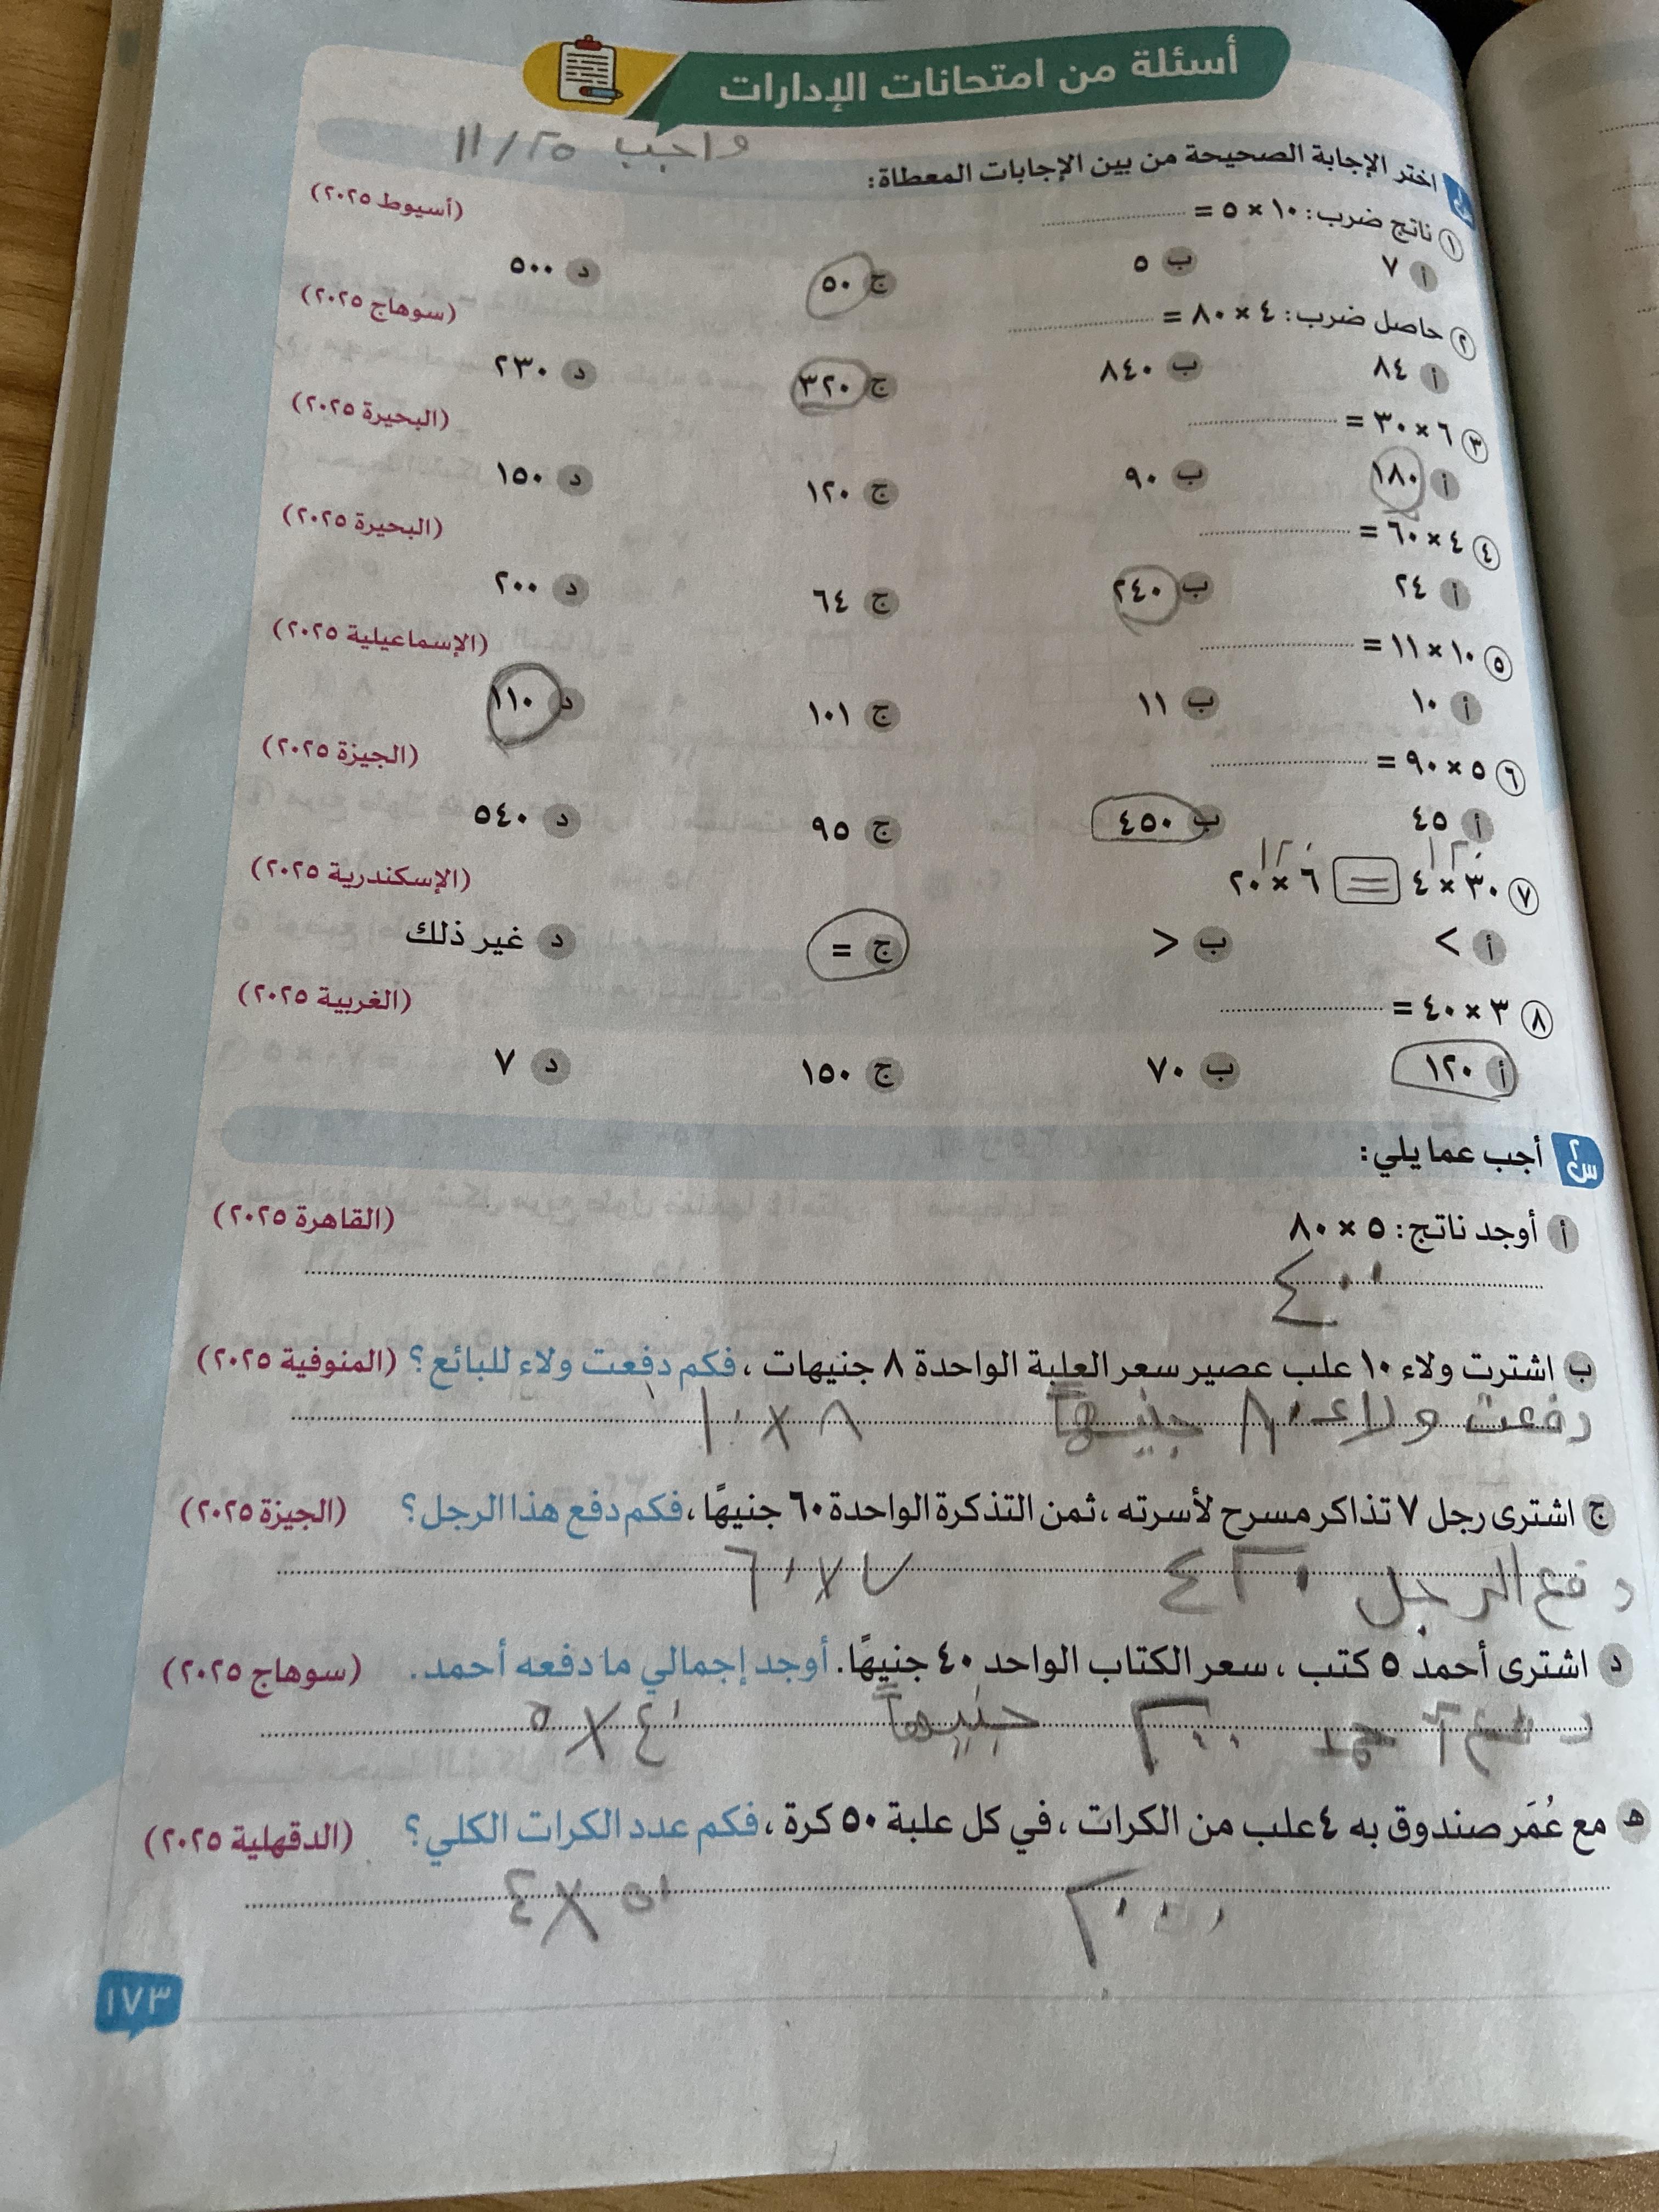 أسئلة من امتحانات الإدارات
واجب ٢٥/ ١١
س١ اختر الإجابة الصحيحة من بين الإجابات المعطاة:
١ ناتج ضرب: ١٠ × ٥ = ............ (أسيوط ٢٠٢٥)
أ ٧ ب ٥ ج ٥٠ د ٥٠٠
٢ حاصل ضرب: ٤ × ٨٠ = ............ (سوهاج ٢٠٢٥)
أ ٨٤ ب ٨٤٠ ج ٣٢٠ د ٢٣٠
٣ ٦ × ٣٠ = ............ (البحيرة ٢٠٢٥)
أ ١٨٠ ب ٩٠ ج ١٢٠ د ١٥٠
٤ ٤ × ٦٠ = ............ (البحيرة ٢٠٢٥)
أ ٢٤ ب ٢٤٠ ج ٦٤ د ٢٠٠
٥ ١٠ × ١١ = ............ (الإسماعيلية ٢٠٢٥)
أ ١٠ ب ١١ ج ١٠١ د ١١٠
٦ ٥ × ٩٠ = ............ (الجيزة ٢٠٢٥)
أ ٤٥ ب ٤٥٠ ج ٩٥ د ٥٤٠
١٢٠ ١٢٠
٧ ٣٠ × ٤ = ٦ × ٢٠ (الإسكندرية ٢٠٢٥)
أ > ب < ج = د غير ذلك
٨ ٣ × ٤٠ = ............ (الغربية ٢٠٢٥)
أ ١٢٠ ب ٧٠ ج ١٥٠ د ٧
س٢ أجب عما يلي:
أ أوجد ناتج: ٥ × ٨٠ (القاهرة ٢٠٢٥)
٤٠٠
ب اشترت ولاء ١٠ علب عصير سعر العلبة الواحدة ٨ جنيهات ، فكم دفعت ولاء للبائع؟ (المنوفية ٢٠٢٥)
دفعت ولاء ٨٠ جنيهاً ٨ × ١٠
ج اشترى رجل ٧ تذاكر مسرح لأسرته ، ثمن التذكرة الواحدة ٦٠ جنيهًا ، فكم دفع هذا الرجل؟ (الجيزة ٢٠٢٥)
دفع الرجل ٤٢٠ ٧ × ٦٠
د اشترى أحمد ٥ كتب ، سعر الكتاب الواحد ٤٠ جنيهًا. أوجد إجمالي ما دفعه أحمد. (سوهاج ٢٠٢٥)
دفع أحمد ٢٠٠ جنيهاً ٤٠ × ٥
ه مع عُمَر صندوق به ٤ علب من الكرات ، في كل علبة ٥٠ كرة ، فكم عدد الكرات الكلي؟ (الدقهلية ٢٠٢٥)
٥٠ × ٤
١٧٣